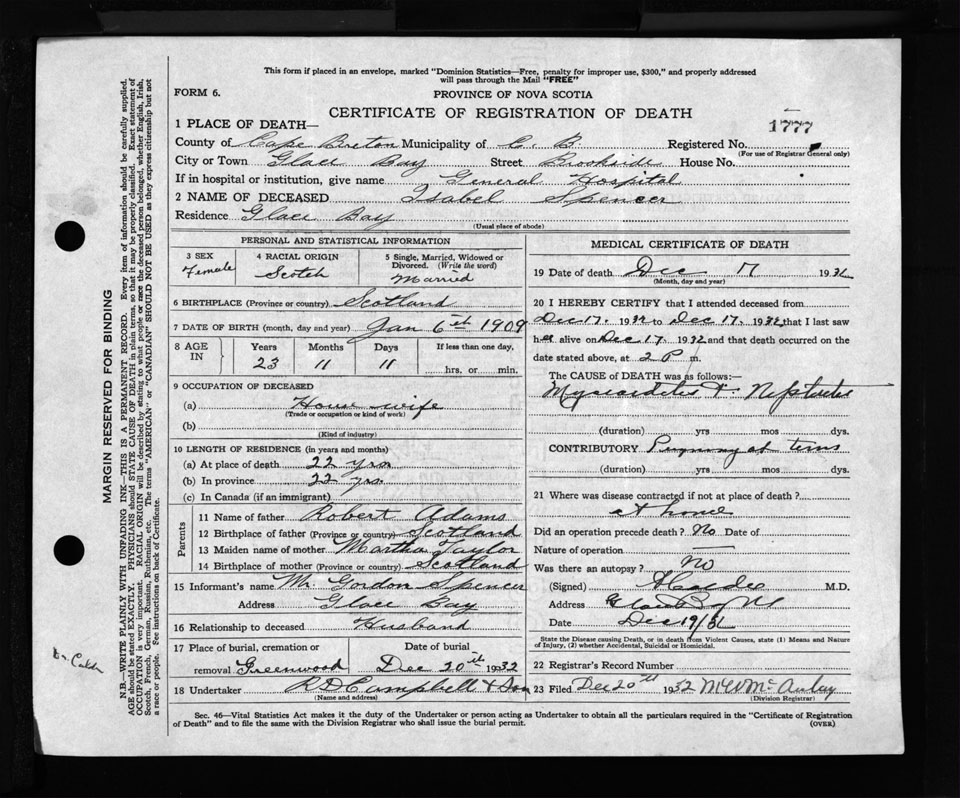 This form if placed in an envelope, marked "Dominion Statistics—Free, penalty for improper use, $300," and properly addressed
will pass through the Mail "FREE"
FORM 6.
PROVINCE OF NOVA SCOTIA
CERTIFICATE OF REGISTRATION OF DEATH
1777
1 PLACE OF DEATH—
County of Cape Breton Municipality of C. B. Registered No.
(For use of Registrar General only)
City or Town Glace Bay Street Brookside House No.
If in hospital or institution, give name General Hospital
2 NAME OF DECEASED Isabel Spencer
Residence Glace Bay
(Usual place of abode)
PERSONAL AND STATISTICAL INFORMATION
3 SEX Female
4 RACIAL ORIGIN Scotch
5 Single, Married, Widowed or Divorced. (Write the word) Married
6 BIRTHPLACE (Province or country) Scotland
7 DATE OF BIRTH (month, day and year) Jan 6th 1909
8 AGE IN Years Months Days If less than one day,
23 11 11 hrs. or min.
9 OCCUPATION OF DECEASED
(a) House wife
(Trade or occupation or kind of work)
(b)
(Kind of industry)
10 LENGTH OF RESIDENCE (in years and months)
(a) At place of death 22 yrs
(b) In province 22 yrs
(c) In Canada (if an immigrant)
Parents
11 Name of father Robert Adams
12 Birthplace of father (Province or country) Scotland
13 Maiden name of mother Martha Taylor
14 Birthplace of mother (Province or country) Scotland
15 Informant's name Mr. Gordon Spencer
Address Glace Bay
16 Relationship to deceased Husband
17 Place of burial, cremation or removal Greenwood
Date of burial Dec 20th 1932
18 Undertaker R D Campbell & Son
(Name and address)
MEDICAL CERTIFICATE OF DEATH
19 Date of death Dec 17 1932
(Month, day and year)
20 I HEREBY CERTIFY that I attended deceased from
Dec 17. 1932 to Dec 17. 1932, that I last saw
her alive on Dec 17 1932 and that death occurred on the
date stated above, at 2 P m.
The CAUSE OF DEATH was as follows:—
(duration) yrs mos. dys.
CONTRIBUTORY at term
(duration) yrs mos. dys.
21 Where was disease contracted if not at place of death?
at home
Did an operation precede death? No Date of
Nature of operation
Was there an autopsy? No
(Signed) M.D.
Address Glace Bay NS
Date Dec 19/32
State the Disease causing Death, or in death from Violent Causes, state (1) Means and Nature
of Injury, (2) whether Accidental, Suicidal or Homicidal.
22 Registrar's Record Number
23 Filed Dec 20th 1932
(Division Registrar)
Sec. 46—Vital Statistics Act makes it the duty of the Undertaker or person acting as Undertaker to obtain all the particulars required in the "Certificate of Registration
of Death" and to file the same with the Division Registrar who shall issue the burial permit.
(OVER)
MARGIN RESERVED FOR BINDING
N.B.—WRITE PLAINLY WITH UNFADING INK—THIS IS A PERMANENT RECORD. Every item of information should be carefully supplied.
AGE should be stated EXACTLY. PHYSICIANS should STATE CAUSE OF DEATH in plain terms, so that it may be properly classified. Exact statement of
OCCUPATION is very important. RACIAL ORIGIN will be described by stating to what people or race the deceased person belonged, whether English, Irish,
Scotch, French, German, Russian, Ruthenian, etc. The terms "AMERICAN" or "CANADIAN" SHOULD NOT BE USED as they express citizenship but not
a race or people. Fee instructions on back of Certificate.